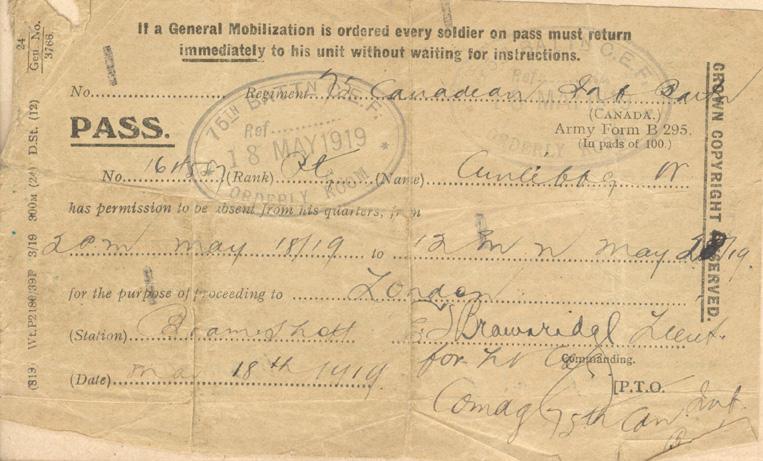 If a General Mobilization is ordered every soldier on pass must return
immediately to his unit without waiting for instructions.
24
Gen. No.
3768
No. Regiment 75 Canadian Inf Battn
(CANADA.)
PASS.
Army Form B 295.
(In pads of 100.)
75TH BATTN C.E.F.
Ref
18 MAY 1919
ORDERLY ROOM
No. (Rank) Pte (Name) W
has permission to be absent from his quarters, from
2 pm may 18/19 to 12 m n may /19.
for the purpose of proceeding to London
(Station) Bramshott Lieut.
for Lt Col
Commanding.
(Date) May 18th 1919
[P.T.O.
Comdg 75th Can Inf.
CROWN COPYRIGHT RESERVED.
(819) Wt.P2180/39P 3/19 900M (24) D.St. (12)